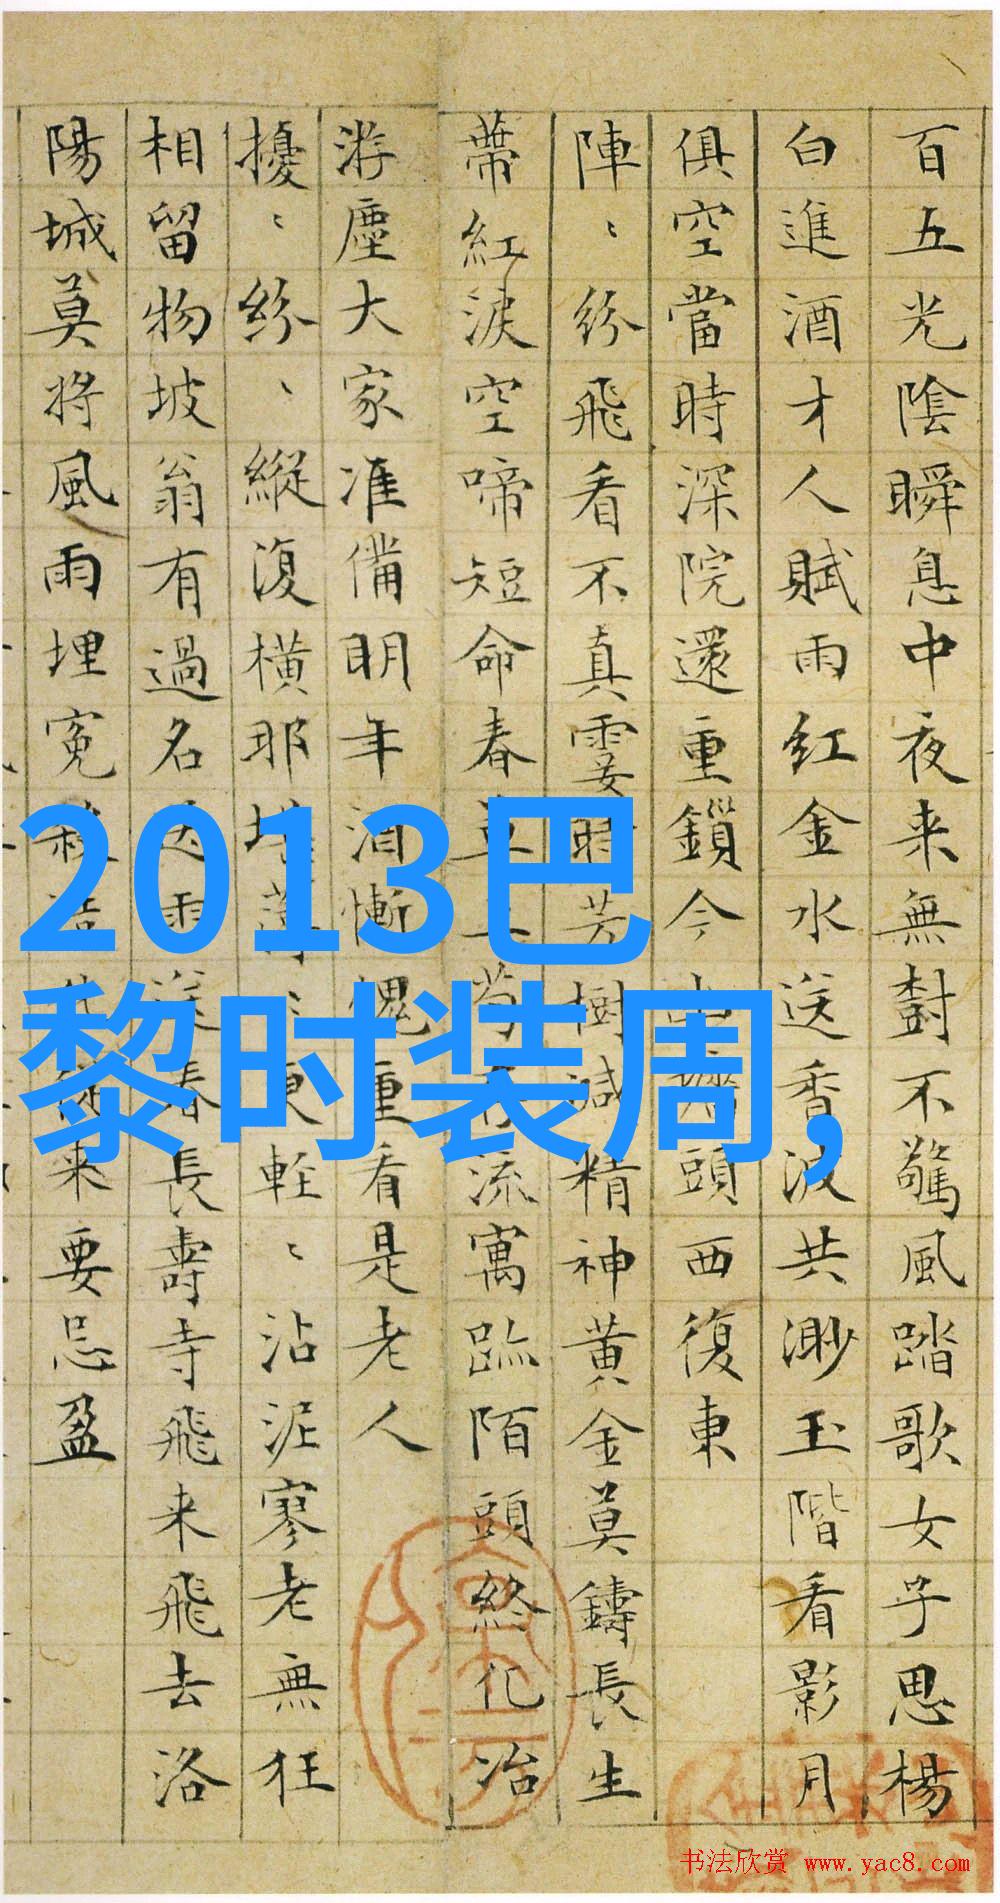 百五光陰瞬息中夜来無對不驚風踏歌女子思楊
白進酒才人賦雨紅金水送香波共渺玉階看影月
俱空當時深院還重鎖今頭西復東
陣〻紛飛看不真霎時芳樹減精神黄金莫鑄長生
蒂紅淚空啼短命春草流寓跡陌頭終化冶
游塵大家准備明年酒慚愧重看是老人
擾〻紛〻縱復橫那堪更輕〻沾泥寥老無狂
相留物坡翁有過名送雨送春長壽寺飛来飛去洛
陽城莫將風雨埋寃殺從来要忌盈
2013巴
黎时装周,
书法欣赏 www.yac8.com